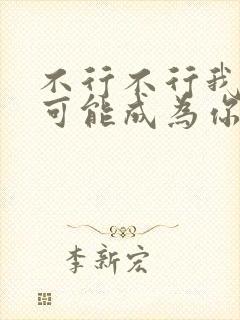 不行不行我
可能成为你
李新宏